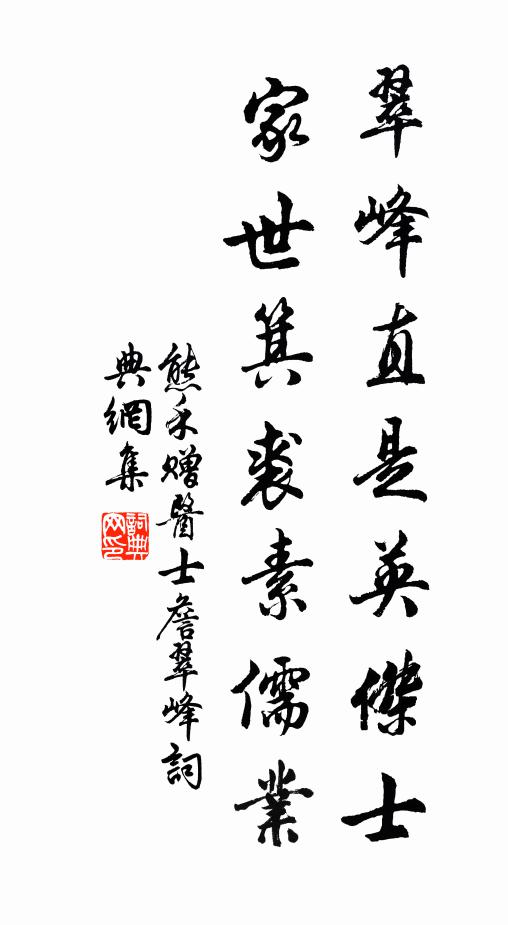 翠峰直是英傑士
家世箕裘素儒業
熊禾贈醫士詹翠峰詞
典網集
詞典
网印